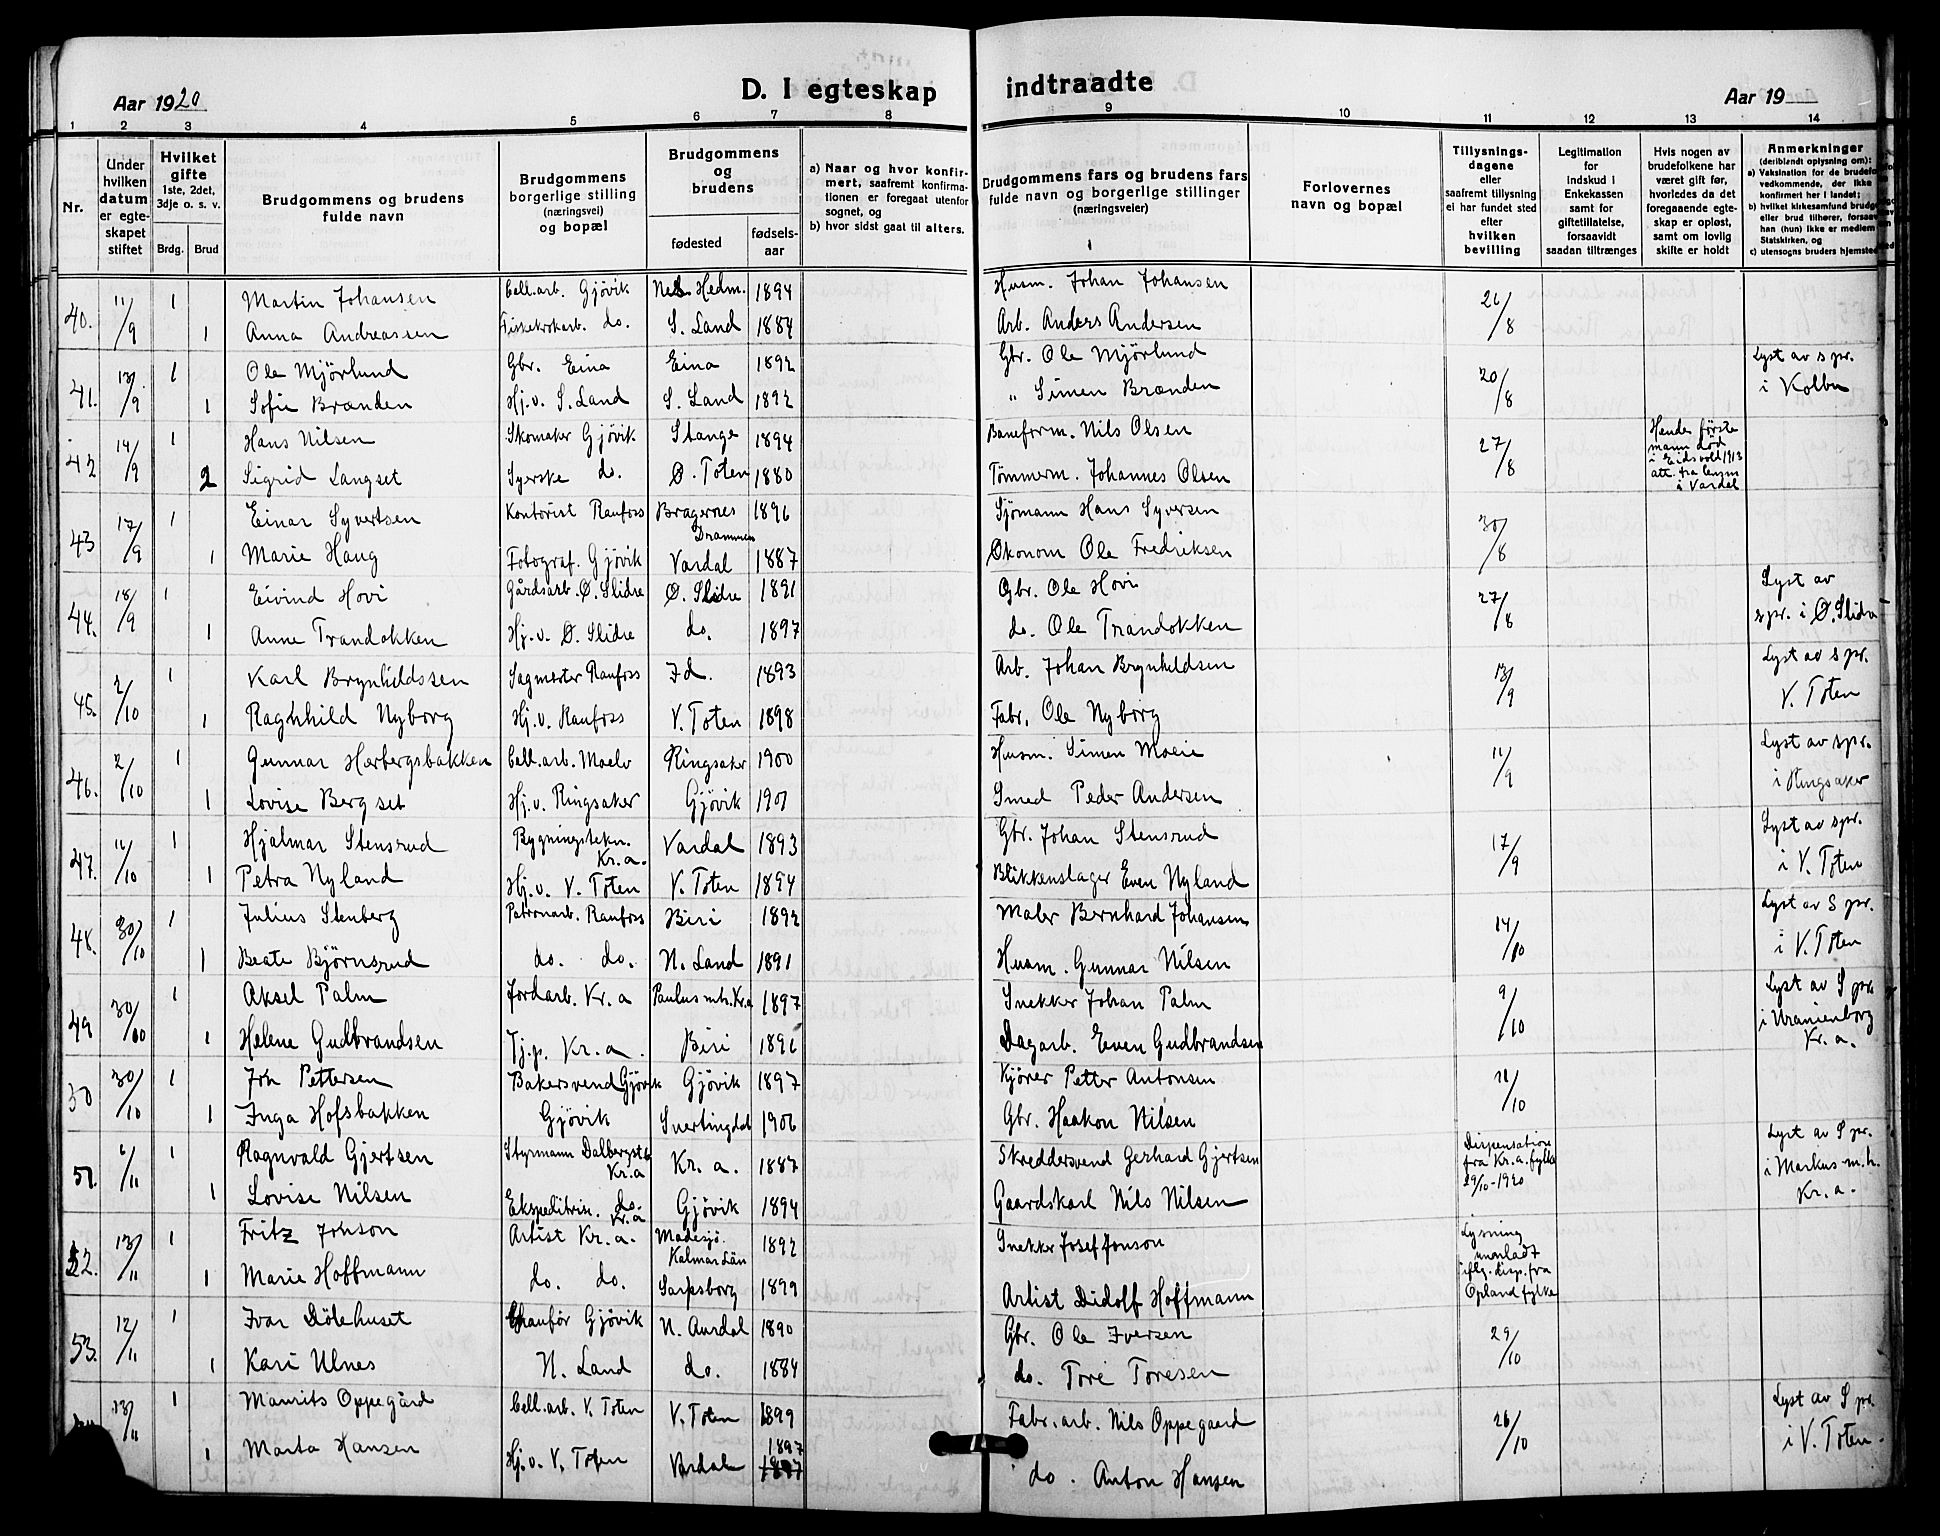 Aar 1920
D. I egteskap indtraadte
Aar 19
1 2 3 4 5 6 7 8 9 10 11 12 13 14
Nr.
Under hvilken datum er egteskapet stiftet
Hvilket gifte 1ste, 2det, 3dje o. s. v.
Brdg. Brud
Brudgommens og brudens fulde navn
Brudgommens borgerlige stilling (næringsvei) og bopæl
Brudgommens og brudens
fødested
fødselsaar
a) Naar og hvor konfirmert, saafremt konfirmationen er foregaat utenfor sognet, og
b) hvor sidst gaat til alters.
Brudgommens fars og brudens fars fulde navn og borgerlige stillinger (næringsveier)
Forlovernes navn og bopæl
Tillysningsdagene eller saafremt tillysning ei har fundet sted efter hvilken bevilling
Legitimation for indskud i Enkekassen samt for giftetillatelse, forsaavidt saadan tiltrænges
Hvis nogen av brudefolkene har været gift før, hvorledes da det foregaaende egteskap er opløst, samt om lovlig skifte er holdt
Anmerkninger (deriblandt oplysning om):
40. 11/9 1 Martin Johansen Cell.arb. Gjövik Nes Hedm. 1894 Husm. Johan Johansen 26/8
1 Anna Andreassen do. S. Land 1884 Arb. Anders Andersen
41. 13/9 1 Ole Mjörlund Gbr. Eina Eina 1892 Gbr. Ole Mjörlund 20/8 Lyst av s pr. i Kolbu
1 Sofie Brænden Hj.v. S. Land S. Land 1892 " Simen Brænden
42 14/9 1 Hans Nilsen Skomaker Gjövik Stange 1894 Baneform. Nils Olsen 27/8 Hendes förste mann död i Eidsvold 1913 att. fra lensm i Vardal
2 Sigrid Langset Syerske do. Ø. Toten 1880 Tömmerm. Johannes Olsen
43 17/9 1 Einar Syvertsen Kontorist Raufoss Bragernes Drammen 1896 Sjömann Hans Syversen 30/8
1 Marie Haug Fotograf. Gjövik Vardal 1887 Økonom Ole Fredriksen
44. 18/9 1 Eivind Hovi Gårdsarb. Ø. Slidre Ø. Slidre 1891 Gbr. Ole Hovi 27/8 Lyst av spr. i Ø. Slidre
1 Anne Trandokken Hj.v. Ø. Slidre do. 1897 do. Ole Trandokken
45. 2/10 1 Karl Brynhildssen Sagmester Raufoss Id. 1893 Arb. Johan Brynhildsen 13/9 Lyst av s pr. V. Toten
1 Raghhild Nyborg Hj.v. Raufoss V. Toten 1898 Fabr. Ole Nyborg
46. 2/10 1 Gunnar Herbergsbakken Cell.arb. Moelv Ringsaker 1900 Husm. Simen Moeie 11/9 Lyst av spr. i Ringsaker
1 Lovise Bergset Hj.v. Ringsaker Gjövik 1901 Smed Peder Andersen
47. 11/10 1 Hjalmar Stensrud Bygningstekn. Kr.a. Vardal 1893 Gbr. Johan Stensrud 17/9 Lyst av spr. i V. Toten
1 Petra Nyland Hj.v. V. Toten V. Toten 1894 Blikkenslager Even Nyland
48. 30/10 1 Julius Stenberg Patronarb. Raufoss Biri 1892 Maler Bernhard Johansen 14/10 Lyst av S pr. i V. Toten
1 Beate Björnsrud do. do. N. Land 1891 Husm. Gunnar Nilsen
49 30/10 1 Aksel Palm Jordarb. Kr.a Paulus mh. Kr.a 1897 Snekker Johan Palm 9/10 Lyst av S pr. i Uranienborg Kr.a.
1 Helene Gudbrandsen Tj.p. Kr.a. Biri 1896 Dagarb. Even Gudbrandsen
50 30/10 1 Joh Pettersen Bakersvend Gjövik Gjövik 1897 Kjörer Petter Antonsen /10
1 Inga Hofsbakken Gjövik Snertingdal 1906 Gbr. Haakon Nilsen
51. 6/11 1 Ragnvald Gjertsen Styrmann Dalbergst Kr.a Kr.a. 1887 Skreddersvend Gerhard Gjertsen Dispensation fra Kr.a. fylke 29/10-1920 Lyst av S pr. i Markus m.h. Kr.a.
1 Lovise Nilsen Ekspeditrise. do. Kr.a Gjövik 1894 Gaardskarl Nils Nilsen
52. 13/11 1 Fritz Jonson Artist Kr.a. Madesjö. Kalmar Län 1892 Snekker Josef Jonson Lysning unnladt iflg. disp. fra Opland fylke
1 Marie Hoffmann do. do. Sarpsborg 1899 Artist Didolf Hoffmann
53. 12/11 1 Ivar Dölehuset Chauför Gjövik N. Aurdal 1890 Gbr. Ole Iversen 29/10
1 Kari Ulnes N. Land do. 1884 do. Tore Toresen
13/11 1 Maurits Oppegård Cell.arb. V. Toten V. Toten 1899 Fabr.arb. Nils Oppegaard 26/10 Lyst av S pr. i V. Toten.
1 Marta Hansen Hj.v. V. Toten Vardal 1897 do. Anton Hansen